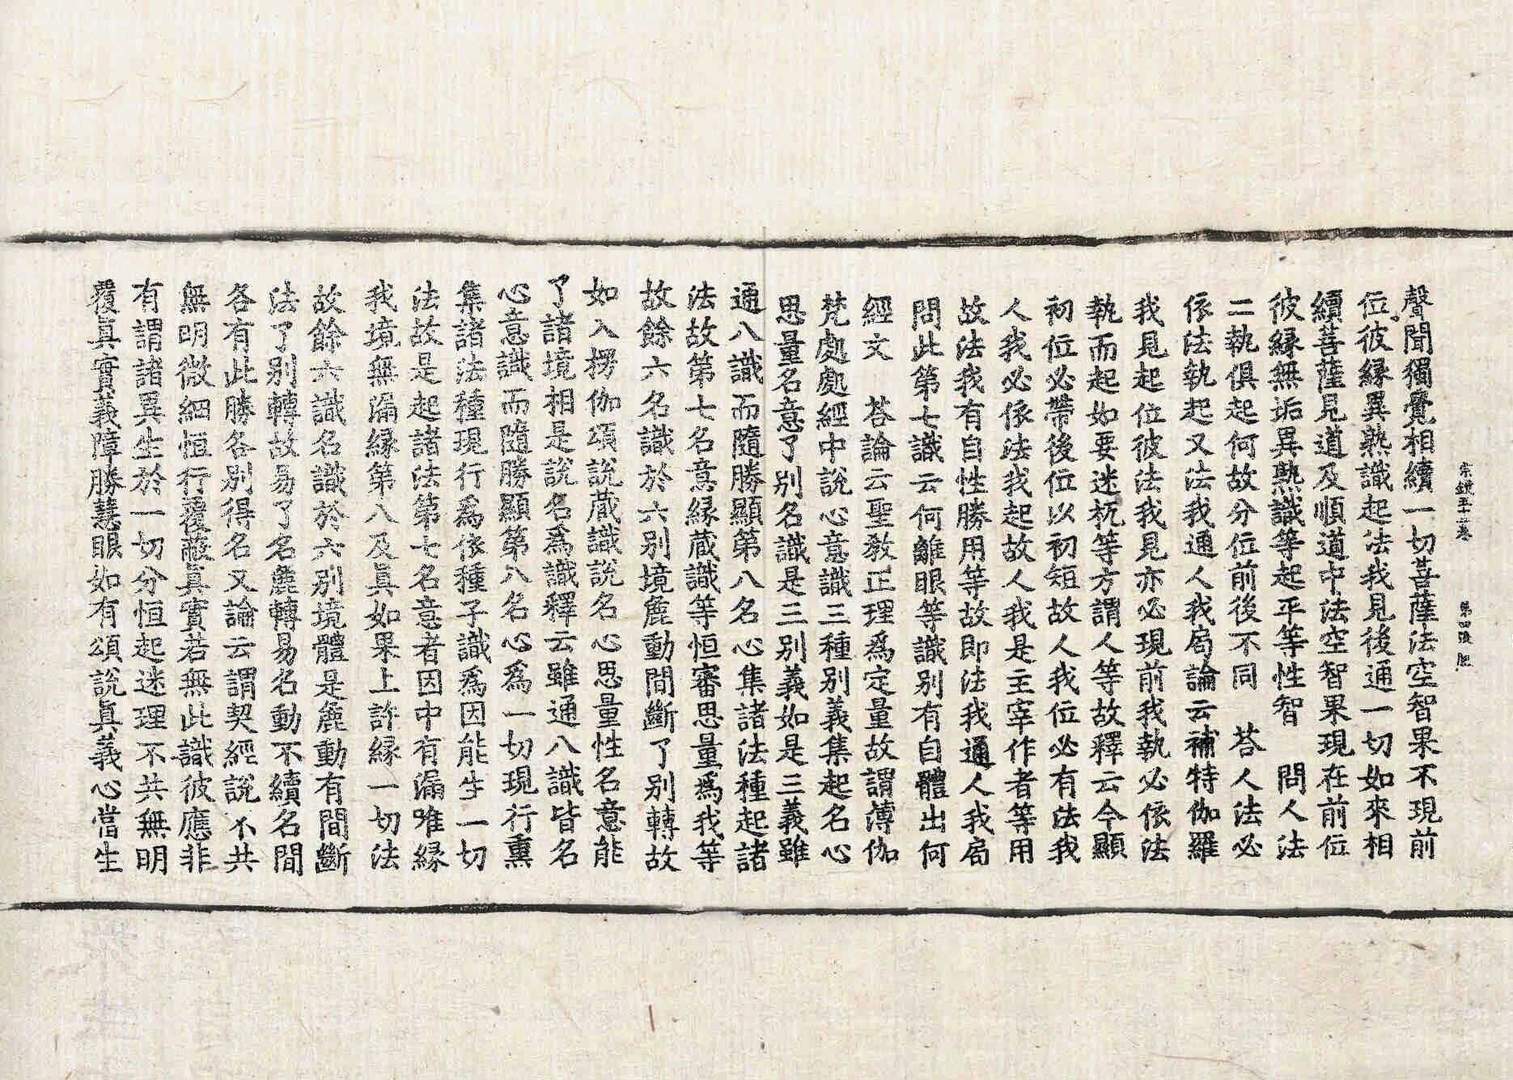 宗鏡五十二卷　第四張　肥
聲聞獨覺相續一切菩薩法空智果不現前
位彼緣異熟識起法我見後通一切如來相
續菩薩見道及順道中法空智果現在前位
彼緣無垢異熟識等起平等性智　問人法
二執俱起何故分位前後不同　荅人法必
依法執起又法我通人我局論云補特伽羅
我見起位彼法我見亦必現前我執必依法
執而起如要迷杌等方謂人等故釋云今顯
初位必帶後位以初短故人我位必有法我
人我必依法我起故人我是主宰作者等用
故法我有自性勝用等故即法我通人我局
問此第七識云何離眼等識別有自體出何
經文　荅論云聖教正理爲定量故謂薄伽
梵處處經中說心意識三種別義集起名心
思量名意了別名識是三別義如是三義雖
通八識而隨勝顯第八名心集諸法種起諸
法故第七名意緣藏識等恒審思量爲我等
故餘六名識於六別境麁動間斷了別轉故
如入楞伽頌說藏識說名心思量性名意能
了諸境相是說名爲識釋云雖通八識皆名
心意識而隨勝顯第八名心爲一切現行熏
集諸法種現行爲依種子識爲因能生一切
法故是起諸法第七名意者因中有漏唯緣
我境無漏緣第八及眞如果上許緣一切法
故餘六識名識於六別境體是麁動有間斷
法了別轉故易了名麁轉易名動不續名間
各有此勝各別得名又論云謂契經說不共
無明微細恒行覆蔽眞實若無此識彼應非
有謂諸異生於一切分恒起迷理不共無明
覆眞實義障勝慧眼如有頌說眞義心當生